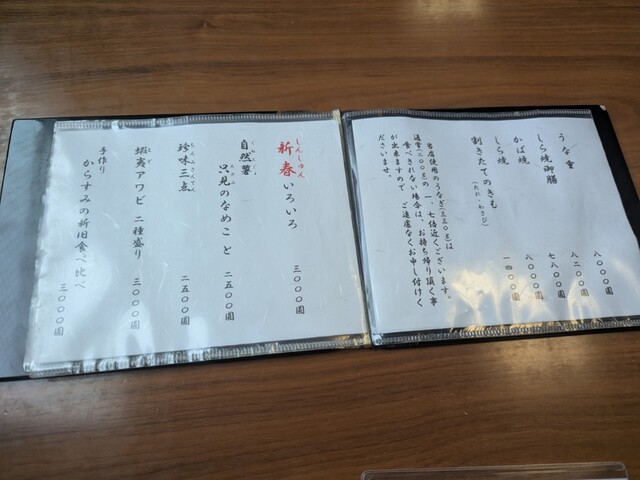 うな重 八〇〇〇圓
しら焼御膳 八二〇〇圓
かば焼 七八〇〇圓
しら焼 八〇〇〇圓
割きたてのきも(たれ・わさび) 一四〇〇圓
当店使用のうなぎ
は
通常
の一、七倍近くございます。
食べきれない場合は、お持ち帰り頂く事
が出来ますので、ご遠慮なくお申し付けく
ださいませ。
しんしゅん
新春いろいろ 三〇〇〇圓
自然薯
只見のなめこと 二五〇〇圓
珍味三点 二五〇〇圓
蝦夷アワビ 二種盛り 三〇〇〇圓
手作り
からすみの新旧食べ比べ 三〇〇〇圓